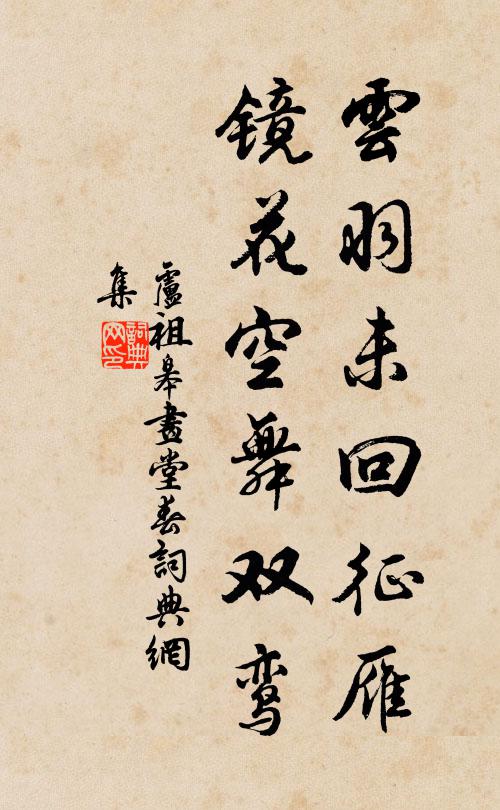 雲羽未回征雁
镜花空舞双鸾
盧祖皋畫堂春詞典網
集
詞典网印